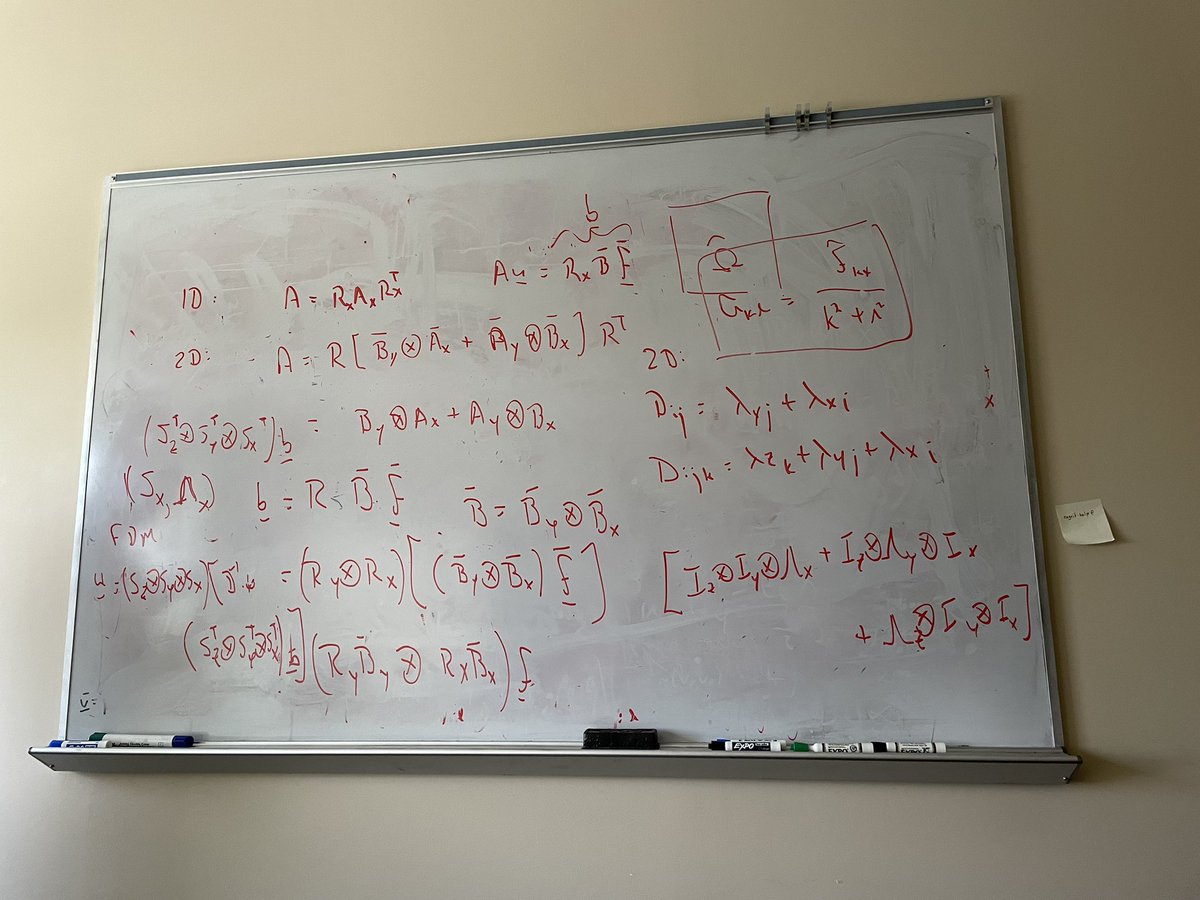 b
A u = R_x B̄ f̄
1D: A = R_x A_x R_x^T
2D: A = R [ B̄_y ⊗ Ā_x + Ā_y ⊗ B̄_x ] R^T
(S_z^T ⊗ S_y^T ⊗ S_x^T) b = B_y ⊗ A_x + A_y ⊗ B_x
(S_x, Λ_x) b = R B̄ f̄ B̄ = B̄_y ⊗ B̄_x
FDM
u = (S_z ⊗ S_y ⊗ S_x) [ D^-1 = (R_y ⊗ R_x) [ (B̄_y ⊗ B̄_x) f̄ ]
(S_z^T ⊗ S_y^T ⊗ S_x^T) b ] (R_y B̄_y ⊗ R_x B̄_x) f
v̄ =
Ω̂
û_kl = f̂_kl / k² + l²
2D:
D_ij = λ_yj + λ_xi
D_ijk = λ_zk + λ_yj + λ_xi
[ I_z ⊗ I_y ⊗ Λ_x + I_z ⊗ Λ_y ⊗ I_x
+ Λ_z ⊗ I_y ⊗ I_x ]
EXPO
EXPO
EXPO